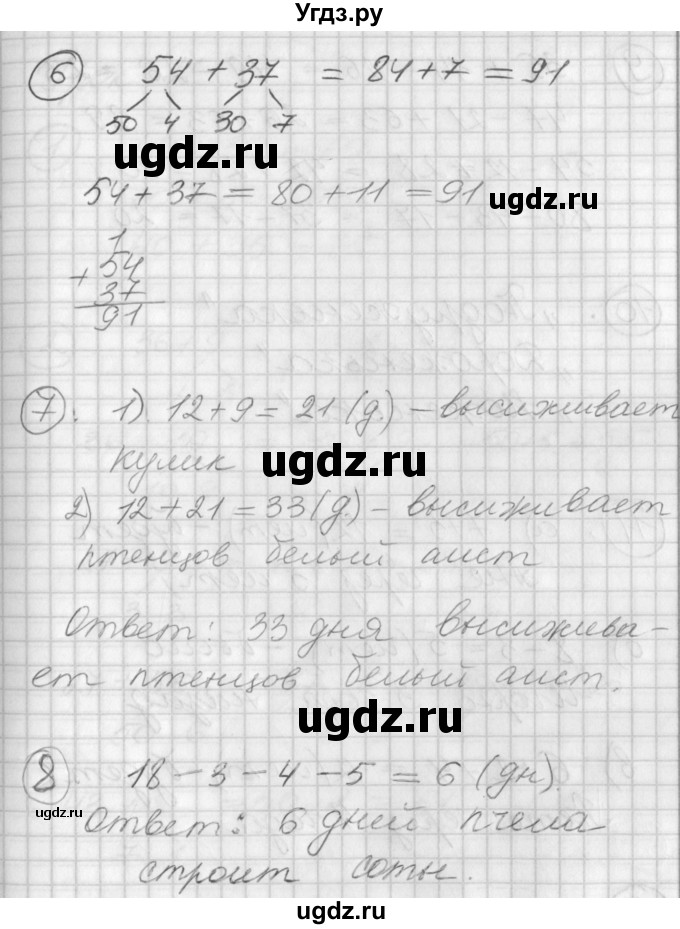 Угдз.ру
6 54 + 37 = 84 + 7 = 91
50 4 30 7
ugdz.ru
54 + 37 = 80 + 11 = 91
ugdz.ru
1
+ 54
37
91
7. 1) 12 + 9 = 21 (д.) – высиживает
кулик
ugdz.ru
2) 12 + 21 = 33 (д.) – высиживает
птенцов белый аист
Ответ: 33 дня высижива-
ет птенцов белый аист.
ugdz.ru
8 18 – 3 – 4 – 5 = 6 (дн).
ugdz.ru
Ответ: 6 дней пчела
строит соты.
ugdz.ru
ugdz.ru